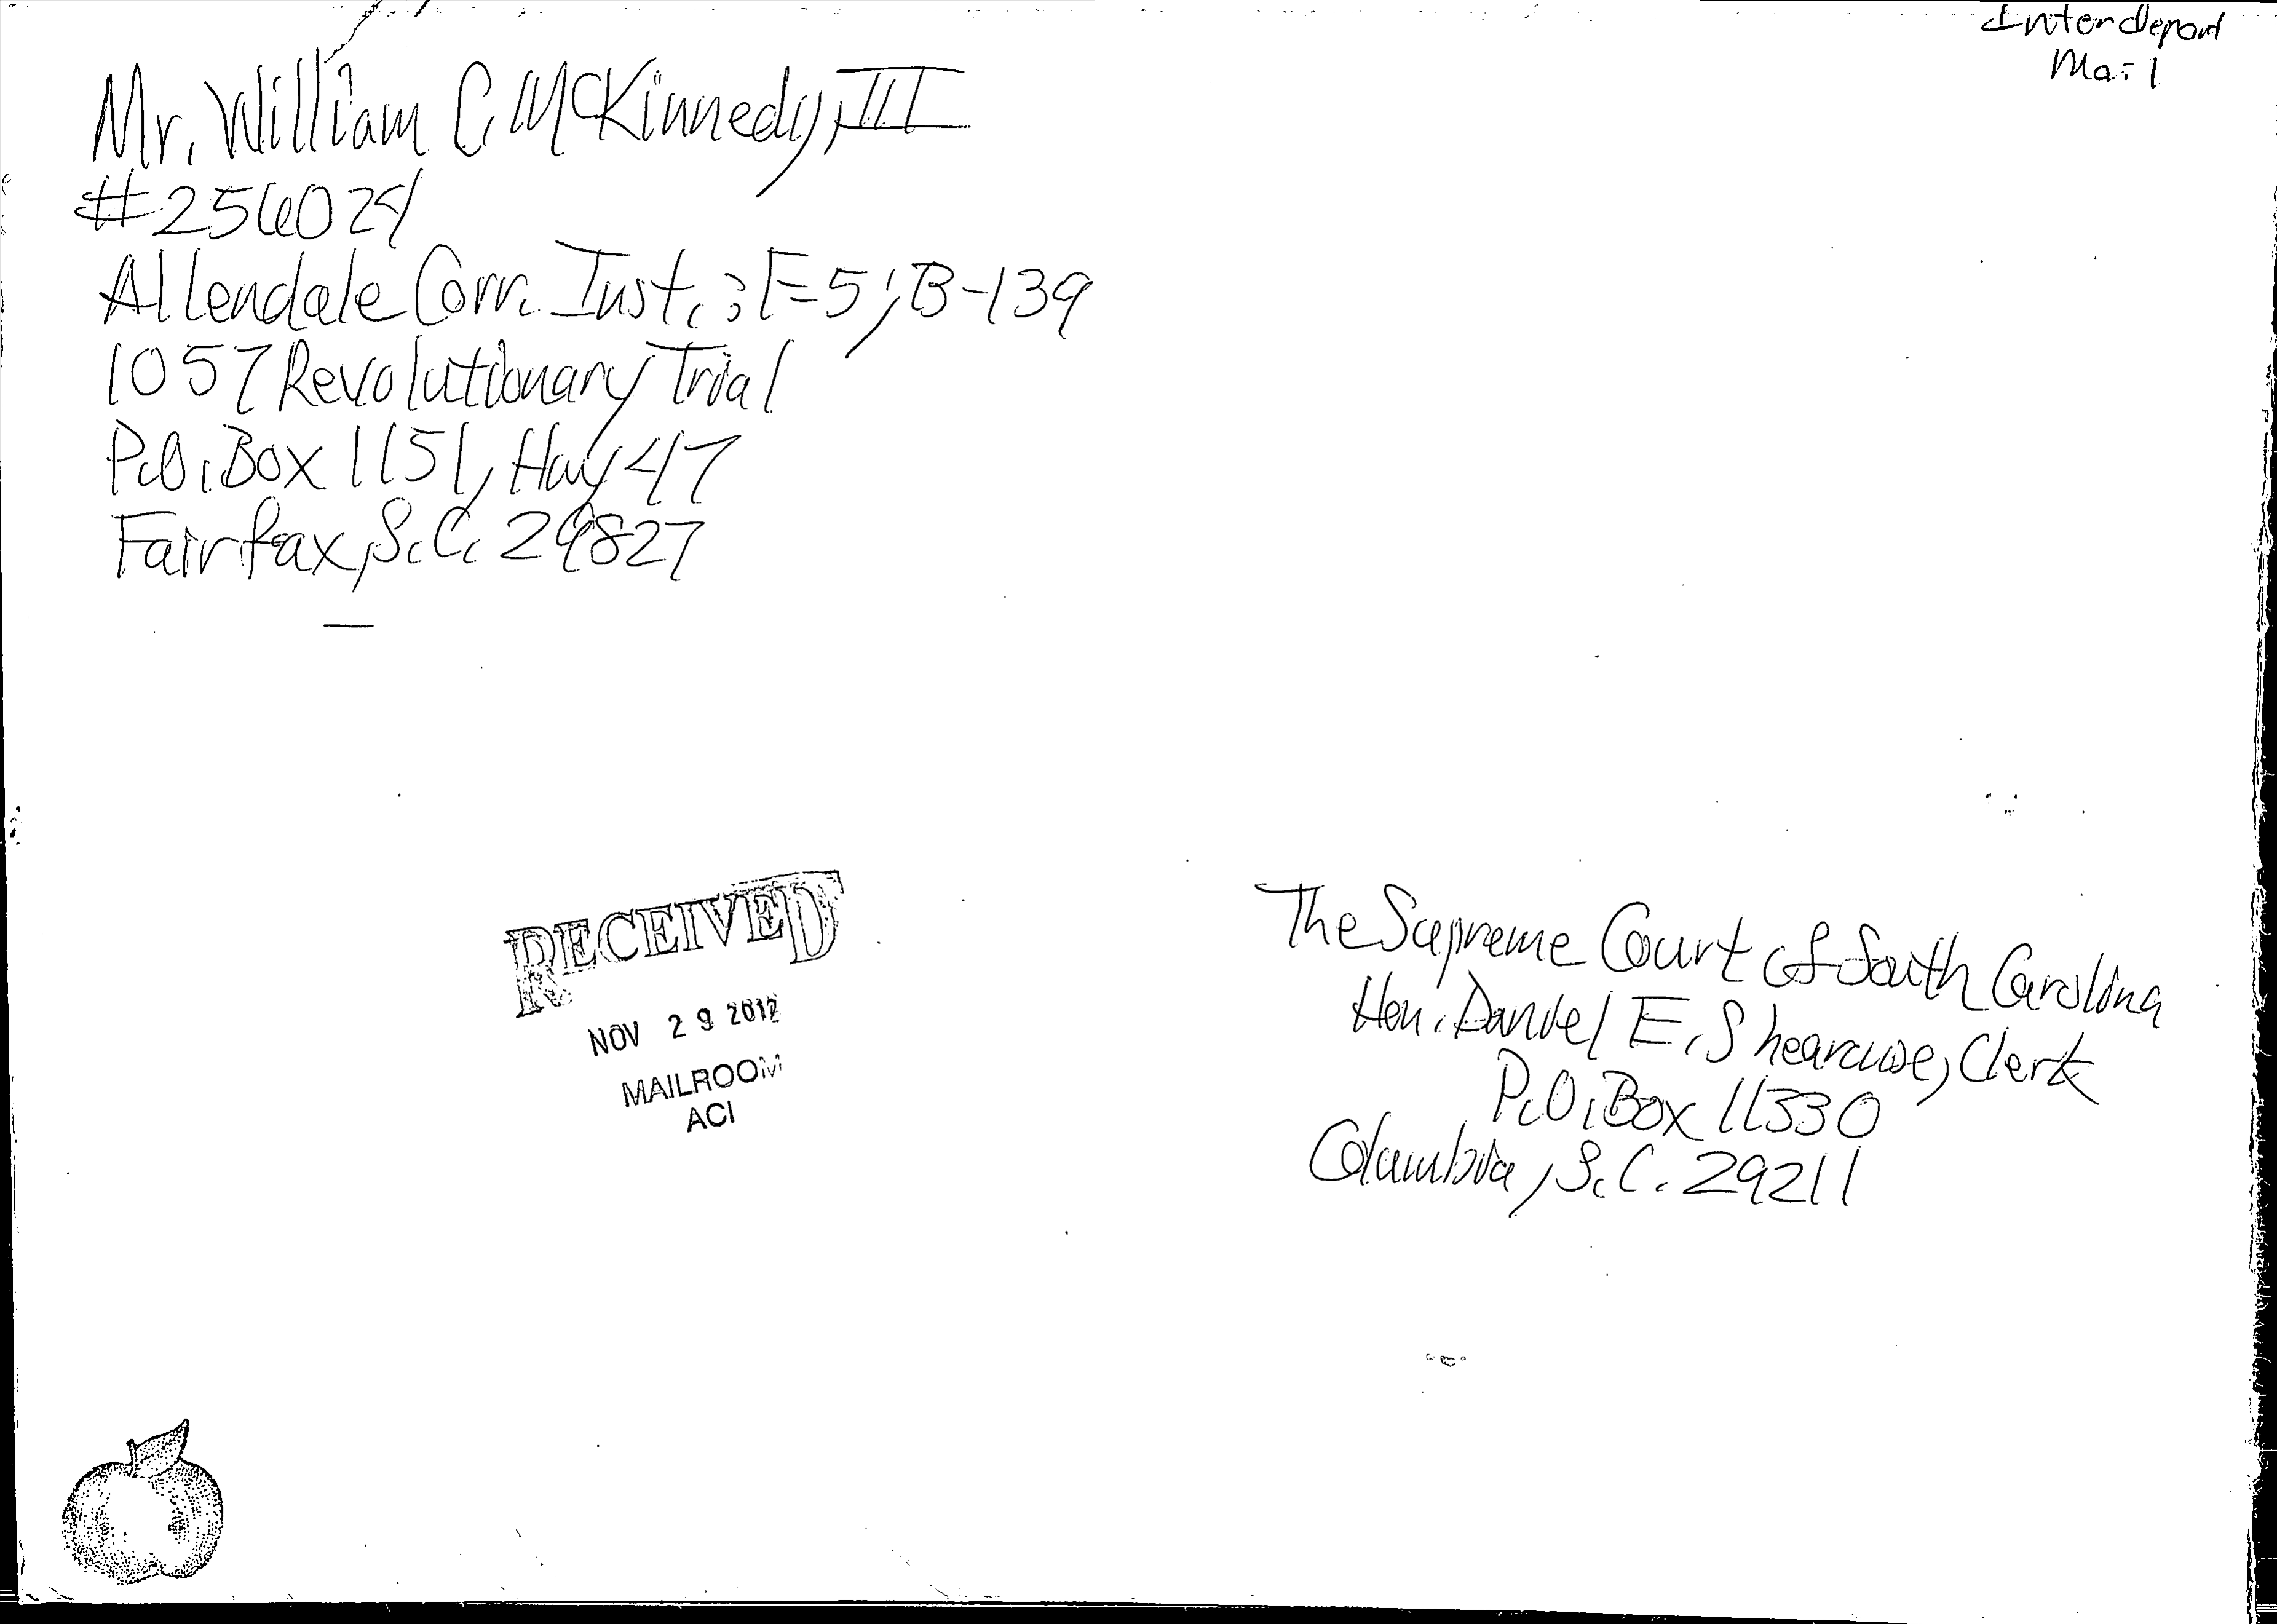 Interdepart
Mail
Mr. William C. McKinnedy, III
#256024
Allendale Corr. Inst.; F-5; B-139
1057 Revolutionary Trial
P.O. Box 1151, Hwy 47
Fairfax, S.C. 29827
RECEIVED
NOV 29 2012
MAILROOM
ACI
The Supreme Court of South Carolina
Hon. Daniel E. Shearouse, Clerk
P.O. Box 11330
Columbia, S.C. 29211